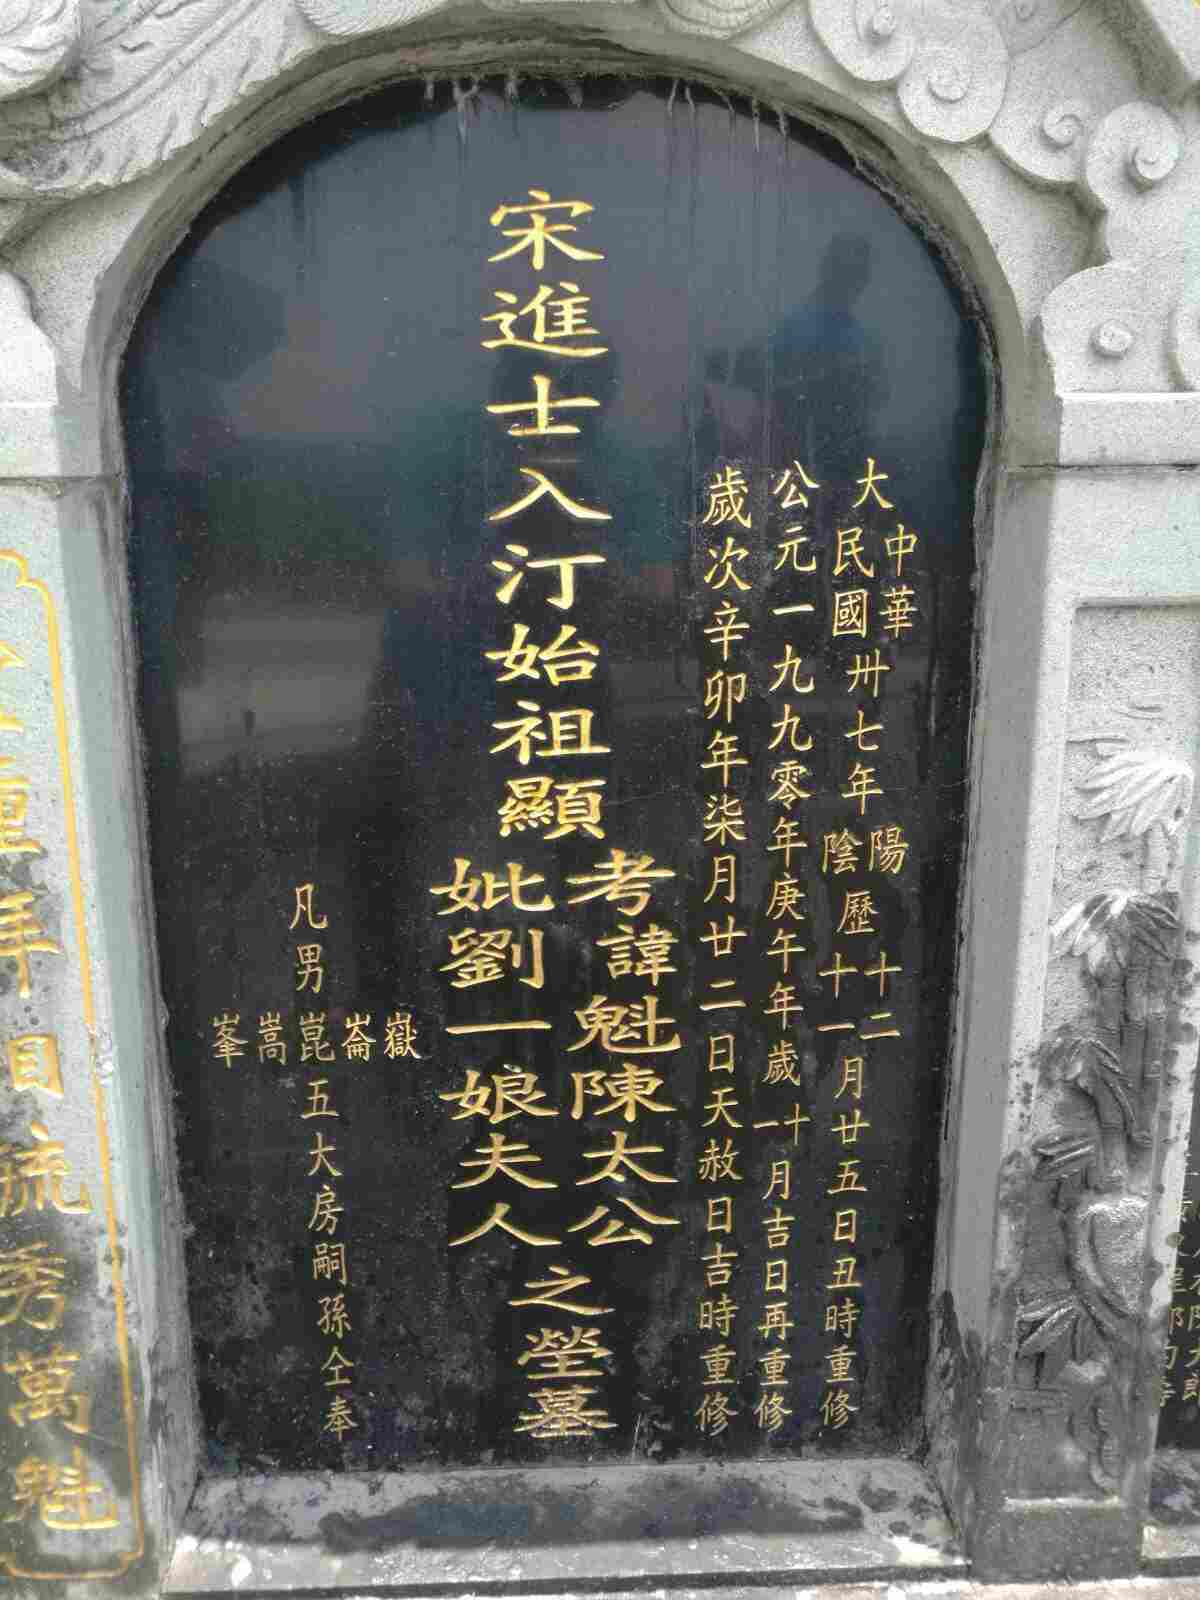 大中華民國卅七年陽陰歷十二十一月廿五日丑時重修
公元一九九零年庚午年歲十一月吉日再重修
歲次辛卯年柒月廿二日天赦日吉時重修
宋進士入汀始祖顯
考諱魁陳太公
妣劉一娘夫人
之塋墓
凡男
嶽崙崑嵩峯
五大房嗣孫仝奉
年目毓秀萬魁